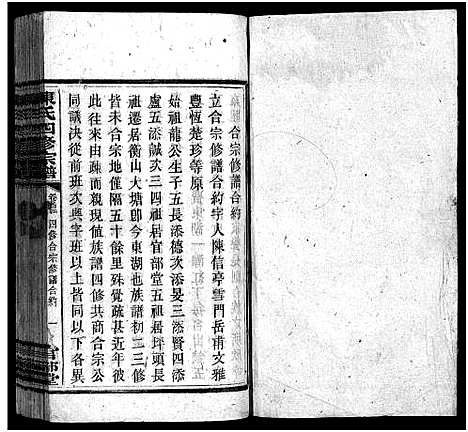 合宗修譜合約
立合宗修譜合約字人陳信亭雪門岳甫文雅
豐恆楚珍等原
始祖龍公生子五長添德次添旻三添賢四添
盧五添誠次三四祖居宜部堂五祖居坪頭長
祖遷居衡山大塘卽今東湖也族譜初二三修
皆未合宗地僅隔五十餘里殊覺疏甚近年彼
此往來由疎而親現值族譜四修共商合宗公
同議決從前班次興字班以上皆同以下各異
陳氏四修宗譜
四修合宗修譜合約
一